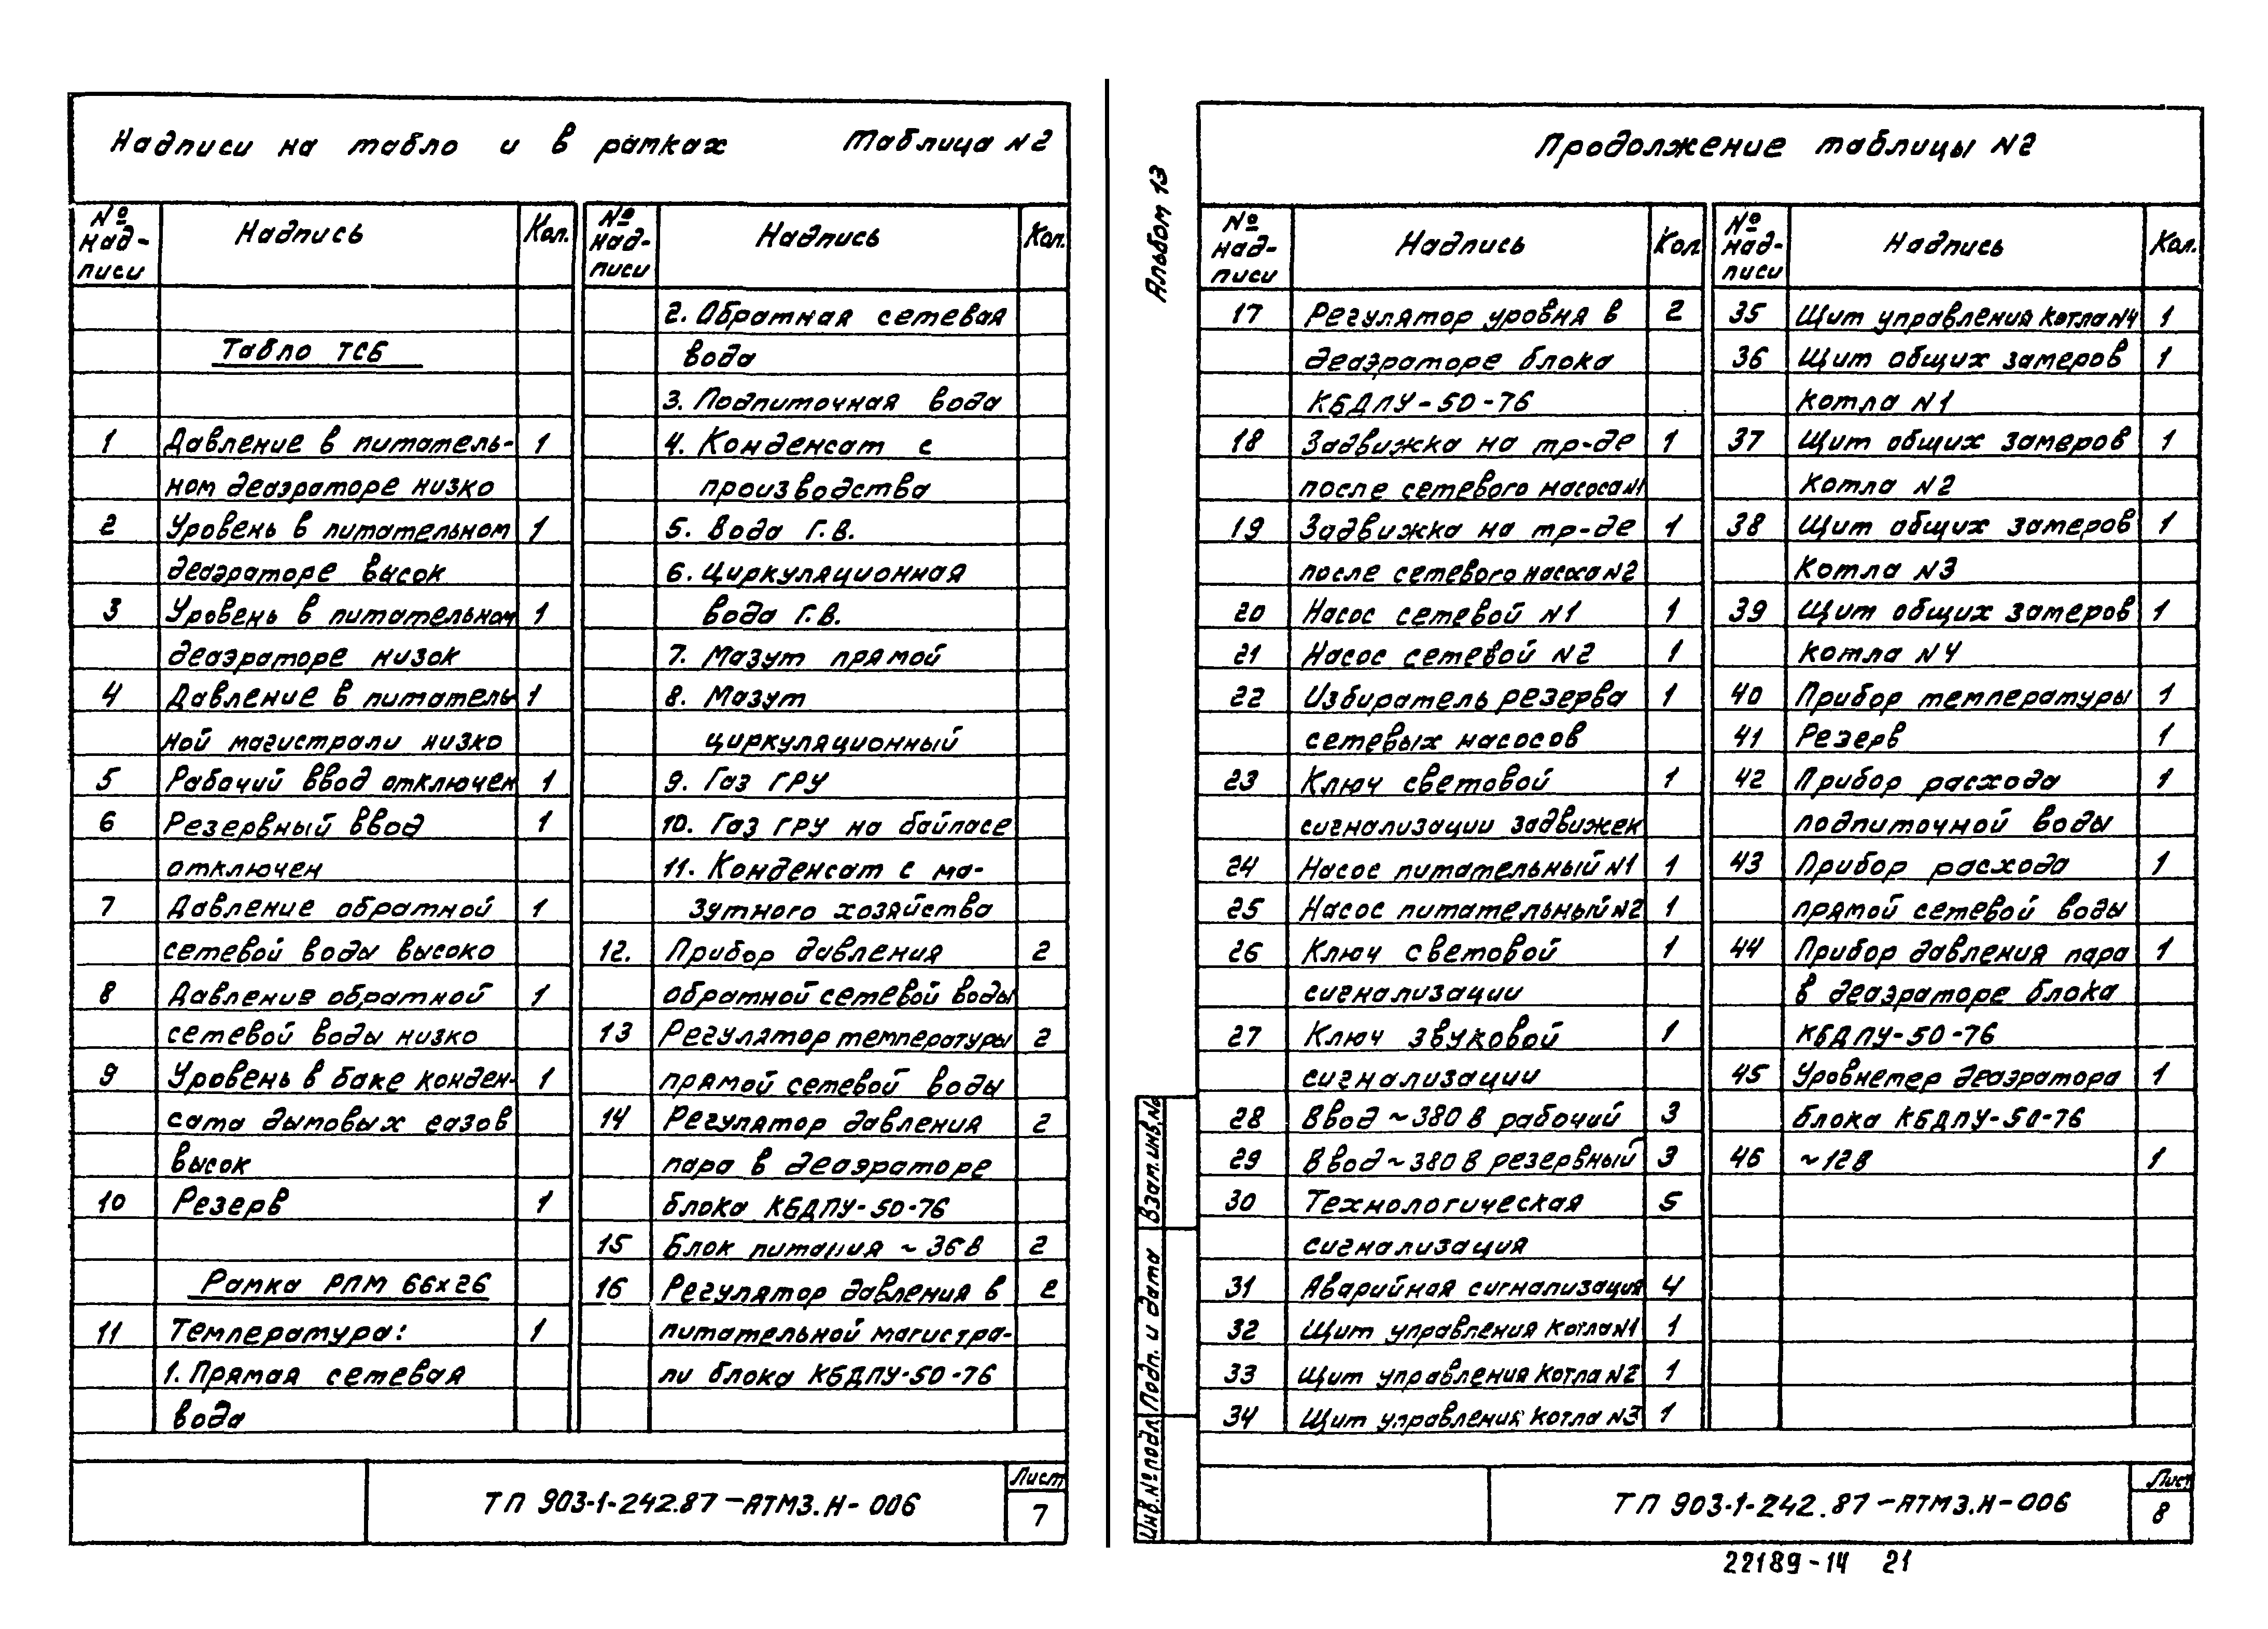 Надписи на табло и в рамках Таблица N2
№ над-писи Надпись Кол.
Табло ТСБ
1 Давление в питатель- 1
ном деаэраторе низко
2 Уровень в питательном 1
деаэраторе высок
3 Уровень в питательном 1
деаэраторе низок
4 Давление в питатель- 1
ной магистрали низко
5 Рабочий ввод отключен 1
6 Резервный ввод 1
отключен
7 Давление обратной 1
сетевой воды высоко
8 Давление обратной 1
сетевой воды низко
9 Уровень в баке конден- 1
сата дымовых газов
высок
10 Резерв 1
Рамка РПМ 66x26
11 Температура: 1
1. Прямая сетевая
вода
№ над-писи Надпись Кол.
2. Обратная сетевая
вода
3. Подпиточная вода
4. Конденсат с
производства
5. Вода Г.В.
6. Циркуляционная
вода Г.В.
7. Мазут прямой
8. Мазут
циркуляционный
9. Газ ГРУ
10. Газ ГРУ на байпасе
11. Конденсат с ма-
зутного хозяйства
12. Прибор давления 2
обратной сетевой воды
13 Регулятор температуры 2
прямой сетевой воды
14 Регулятор давления 2
пара в деаэраторе
блока КБДПУ-50-76
15 Блок питания ~ 36В 2
16 Регулятор давления в 2
питательной магистра-
ли блока КБДПУ-50-76
ТП 903-1-242.87-АТМ3.Н-006
Лист
7
Альбом 13
Продолжение таблицы N2
№ над-писи Надпись Кол
17 Регулятор уровня в 2
деаэраторе блока
КБДПУ-50-76
18 Задвижка на тр-де 1
после сетевого насоса N1
19 Задвижка на тр-де 1
после сетевого насоса N2
20 Насос сетевой N1 1
21 Насос сетевой N2 1
22 Избиратель резерва 1
сетевых насосов
23 Ключ световой 1
сигнализации задвижек
24 Насос питательный N1 1
25 Насос питательный N2 1
26 Ключ световой 1
сигнализации
27 Ключ звуковой 1
сигнализации
28 Ввод ~380 В рабочий 3
29 Ввод ~380 В резервный 3
30 Технологическая 5
сигнализация
31 Аварийная сигнализация 4
32 Щит управления котла N1 1
33 Щит управления котла N2 1
34 Щит управления котла N3 1
№ над-писи Надпись Кол.
35 Щит управления котла N4 1
36 Щит общих замеров 1
котла N1
37 Щит общих замеров 1
котла N2
38 Щит общих замеров 1
котла N3
39 Щит общих замеров 1
котла N4
40 Прибор температуры 1
41 Резерв 1
42 Прибор расхода 1
подпиточной воды
43 Прибор расхода 1
прямой сетевой воды
44 Прибор давления пара 1
в деаэраторе блока
КБДПУ-50-76
45 Уровнемер деаэратора 1
блока КБДПУ-50-76
46 ~12В 1
Инв.№ подл. Подп. и дата Взам.инв.№
ТП 903-1-242.87-АТМ3.Н-006
Лист
8
22189-14 21